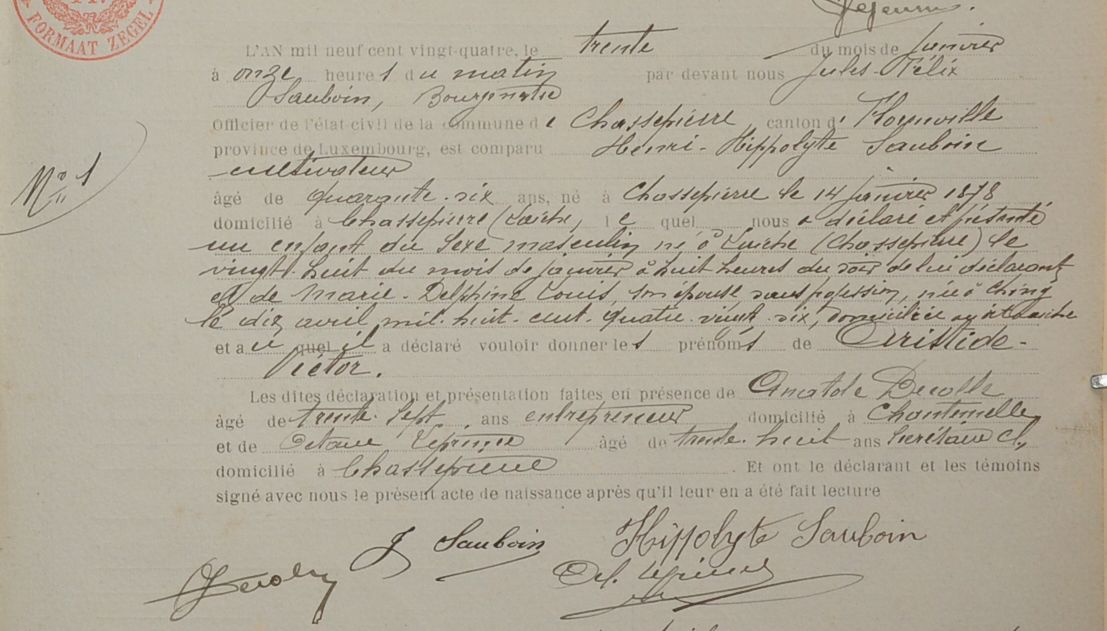 FORMAAT ZEGEL
Lejeune.
L'AN mil neuf cent vingt-quatre, le trente du mois de janvier
à onze heures du matin par devant nous Jules-Félix
Sauboin, Bourgmestre
Officier de l'état-civil de la commune de Chassepierre, canton de Florenville
province de Luxembourg, est comparu Henri-Hippolyte Sauboin
cultivateur
N° 1
âgé de quarante-six ans, né à Chassepierre le 14 janvier 1878
domicilié à Chassepierre (Laiche, le quel nous a déclaré et présenté
un enfant du sexe masculin né à Laiche (Chassepierre) le
vingt-huit du mois de janvier à huit heures du soir de lui déclarant
et de Marie-Delphine Louis, son épouse sans profession, née à Chiny
le dix avril mil-huit-cent-quatre-vingt-six, domiciliée Laiche
et au quel il a déclaré vouloir donner les prénoms de Aristide-
Victor.
Les dites déclaration et présentation faites en présence de Anatole Decolle
âgé de trente-sept ans entrepreneur domicilié à Chantemelle
et de Octave Léprince âgé de trente-huit ans secrétaire Cl,
domicilié à Chassepierre . Et ont le déclarant et les témoins
signé avec nous le présent acte de naissance après qu'il leur en a été fait lecture
J Sauboin Hippolyte Sauboin